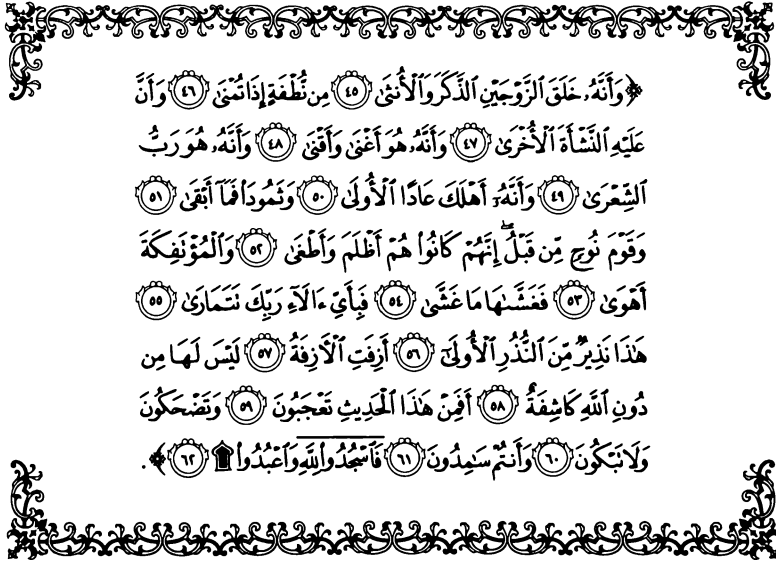 ﴿ وَأَنَّهُۥ خَلَقَ ٱلزَّوْجَيْنِ ٱلذَّكَرَ وَٱلْأُنثَىٰ ٤٥ مِن نُّطْفَةٍ إِذَا تُمْنَىٰ ٤٦ وَأَنَّ
عَلَيْهِ ٱلنَّشْأَةَ ٱلْأُخْرَىٰ ٤٧ وَأَنَّهُۥ هُوَ أَغْنَىٰ وَأَقْنَىٰ ٤٨ وَأَنَّهُۥ هُوَ رَبُّ
ٱلشِّعْرَىٰ ٤٩ وَأَنَّهُۥٓ أَهْلَكَ عَادًا ٱلْأُولَىٰ ٥٠ وَثَمُودَا۟ فَمَآ أَبْقَىٰ ٥١
وَقَوْمَ نُوحٍ مِّن قَبْلُ ۖ إِنَّهُمْ كَانُوا۟ هُمْ أَظْلَمَ وَأَطْغَىٰ ٥٢ وَٱلْمُؤْتَفِكَةَ
أَهْوَىٰ ٥٣ فَغَشَّىٰهَا مَا غَشَّىٰ ٥٤ فَبِأَىِّ ءَالَآءِ رَبِّكَ تَتَمَارَىٰ ٥٥
هَٰذَا نَذِيرٌ مِّنَ ٱلنُّذُرِ ٱلْأُولَىٰٓ ٥٦ أَزِفَتِ ٱلْءَازِفَةُ ٥٧ لَيْسَ لَهَا مِن
دُونِ ٱللَّهِ كَاشِفَةٌ ٥٨ أَفَمِنْ هَٰذَا ٱلْحَدِيثِ تَعْجَبُونَ ٥٩ وَتَضْحَكُونَ
وَلَا تَبْكُونَ ٦٠ وَأَنتُمْ سَٰمِدُونَ ٦١ فَٱسْجُدُوا۟ لِلَّهِ وَٱعْبُدُوا۟ ۩ ٦٢ ﴾ .